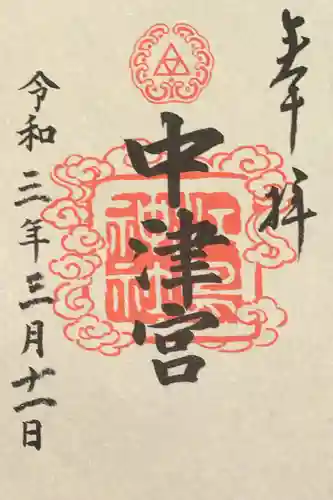 奉拝
中津宮
令和三年三月十一日